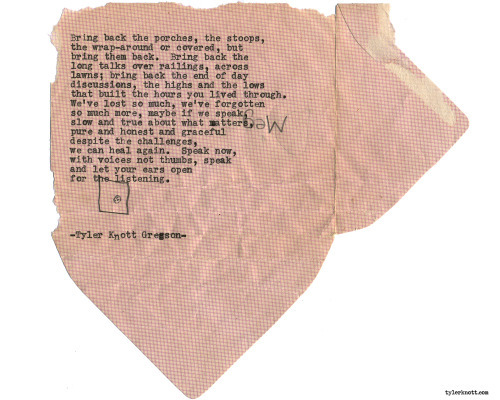 Bring back the porches, the stoops,
the wrap-around or covered, but
bring them back.  Bring back the
long talks over railings, across
lawns; bring back the end of day
discussions, the highs and the lows
that built the hours you lived through.
We've lost so much, we've forgotten
so much more, maybe if we speak
slow and true about what matters,
pure and honest and graceful
despite the challenges,
we can heal again.  Speak now,
with voices not thumbs, speak
and let your ears open
for the listening.
-Tyler Knott Gregson-
tylerknott.com